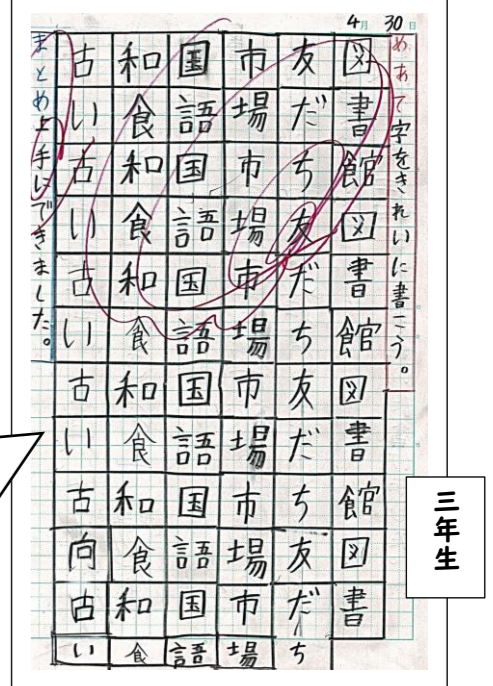 4月30日
めあて字をきれいに書こう。
図書館図書館図書館図書
友だち友だち友だち友だち
市場市場市場市場市場市場
国語国語国語国語国語国語
和食和食和食和食和食和食
古い古い古い古い古向古い
まとめ上手にできました。
三年生